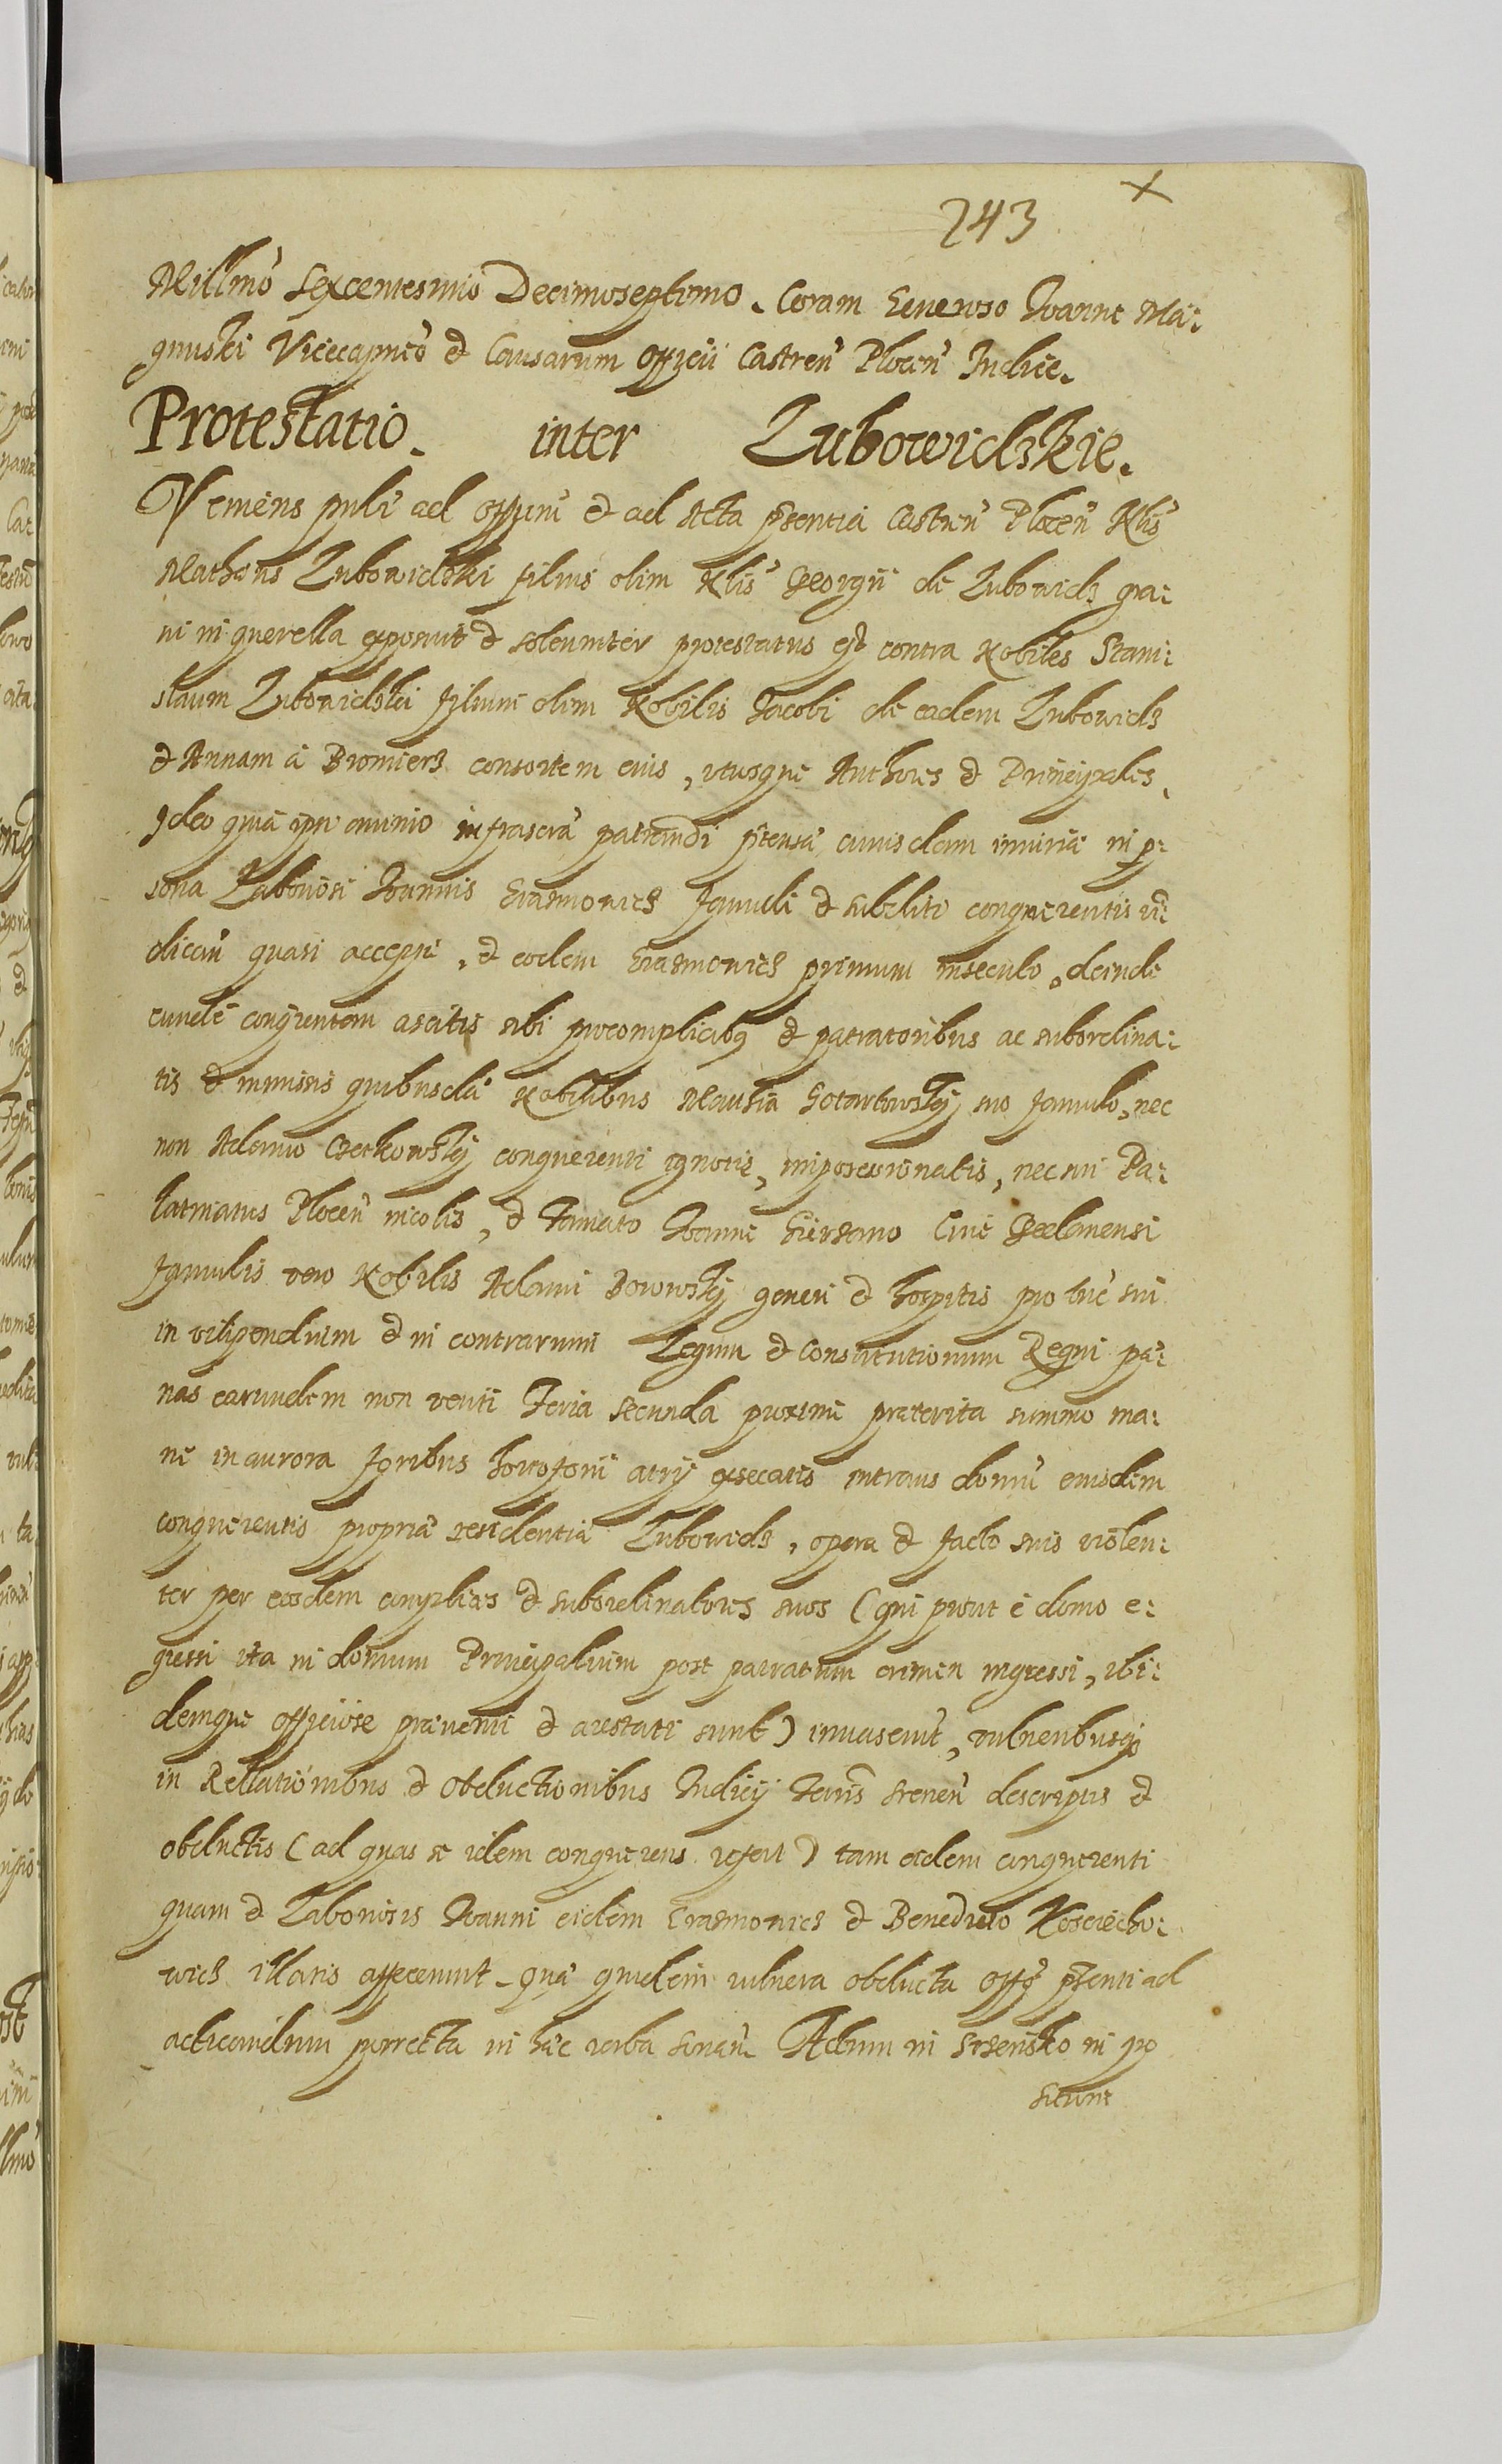 243 ×
Millmo Sexcentesimo Decimoseptimo. Coram Generoso Joanne Ma:
gnuski Vicecapneo et Causarum Officii Castren Plocen Judice.
Protestatio. inter Lubowidzkie.
Veniens puli ad offum et ad Acta pzentia Castren Plocen Nlis
Mathias Lubowidzki filius olim Nlis Georgii de Lubowidz gra:
ui in querella exposuit et solenniter protestatus est contra Nobiles Stani:
slaum Lubowidzki filium olim Nobilis Jacobi de eadem Lubowidz
et Annam a Bromierz consortem eius, utosque Authores et Principales,
Ideo quia ipsi animo infrascra patrandi ptensa cuiusdam iniuria in p:
sona Laboriosi Joannis Erasmowicz famuli et subditi conquerentis in:
dican quasi accepta, et eodem Erasmowicz primum insecuto, deinde
eunde conqrentem ascitis sibi procomplicibq et patratoribus ac subordina:
tis et inmissis quibusda Nobilibus Mathia Gotartowsky suo famulo, nec
non Adamo Czetkowsky conquerenti ignotis, impossessionatis, nec sui Pa:
latinatus Plocen incolis, et Famato Joanne Giersano Ciue Bielanensi
famulis vero Nobilis Adami Borowsky generi et hospitis pro tuc sui
in vilipendium et in contrarium Legum et Constitutionum Regni pae:
nas earundem non veriti Feria secunda proxime praeterita summo ma:
ne in aurora foribus horoforii atrij exsecatis intrans domu eiusdem
conquerentis propria residentia Lubowidz, opera et facto suis violen:
ter per eosdem complices et subordinatores suos (qui prout e domo e:
gressi ita in domum Principalium post patratum crimen ingressi, ibi:
demque officiose praeuenti et arestati sunt) inuaserut, vulneribusq
in Rellationibus et Obductionibus Judicij Terris Srenen descriptis et
obductis (ad quas se idem conquerens refert) tam eidem conquerenti
quam et Laboriosis Joanni eidem Erasmowicz et Benedicto Kosciecho:
wicz illatis affecerunt. Qua quidem vulnera obducta offo pzenti ad
acticandum porrecta in haec verba sonan. Actum in Srzensko in po
sitione